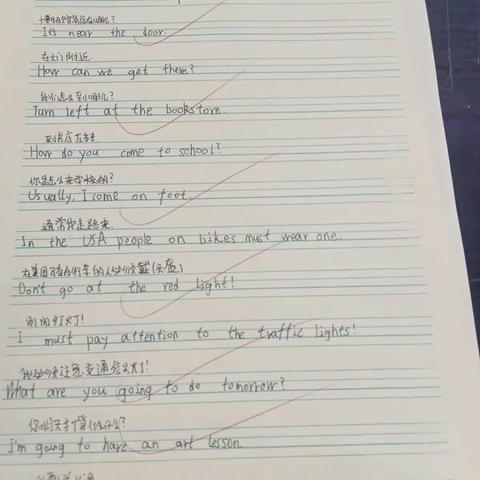 It's near the door.
在大门附近
How can we get there?
我们怎么到那儿?
Turn left at the bookstore.
到书店左转
How do you come to school?
你是怎么来学校的?
Usually, I come on foot.
通常我走路来
In the USA people on bikes must wear one.
在美国骑自行车的人必须戴(头盔)
Don't go at the red light!
别闯红灯!
I must pay attention to the traffic lights!
我必须注意交通信号灯!
What are you going to do tomorrow?
你明天打算做什么?
I'm going to have an art lesson.